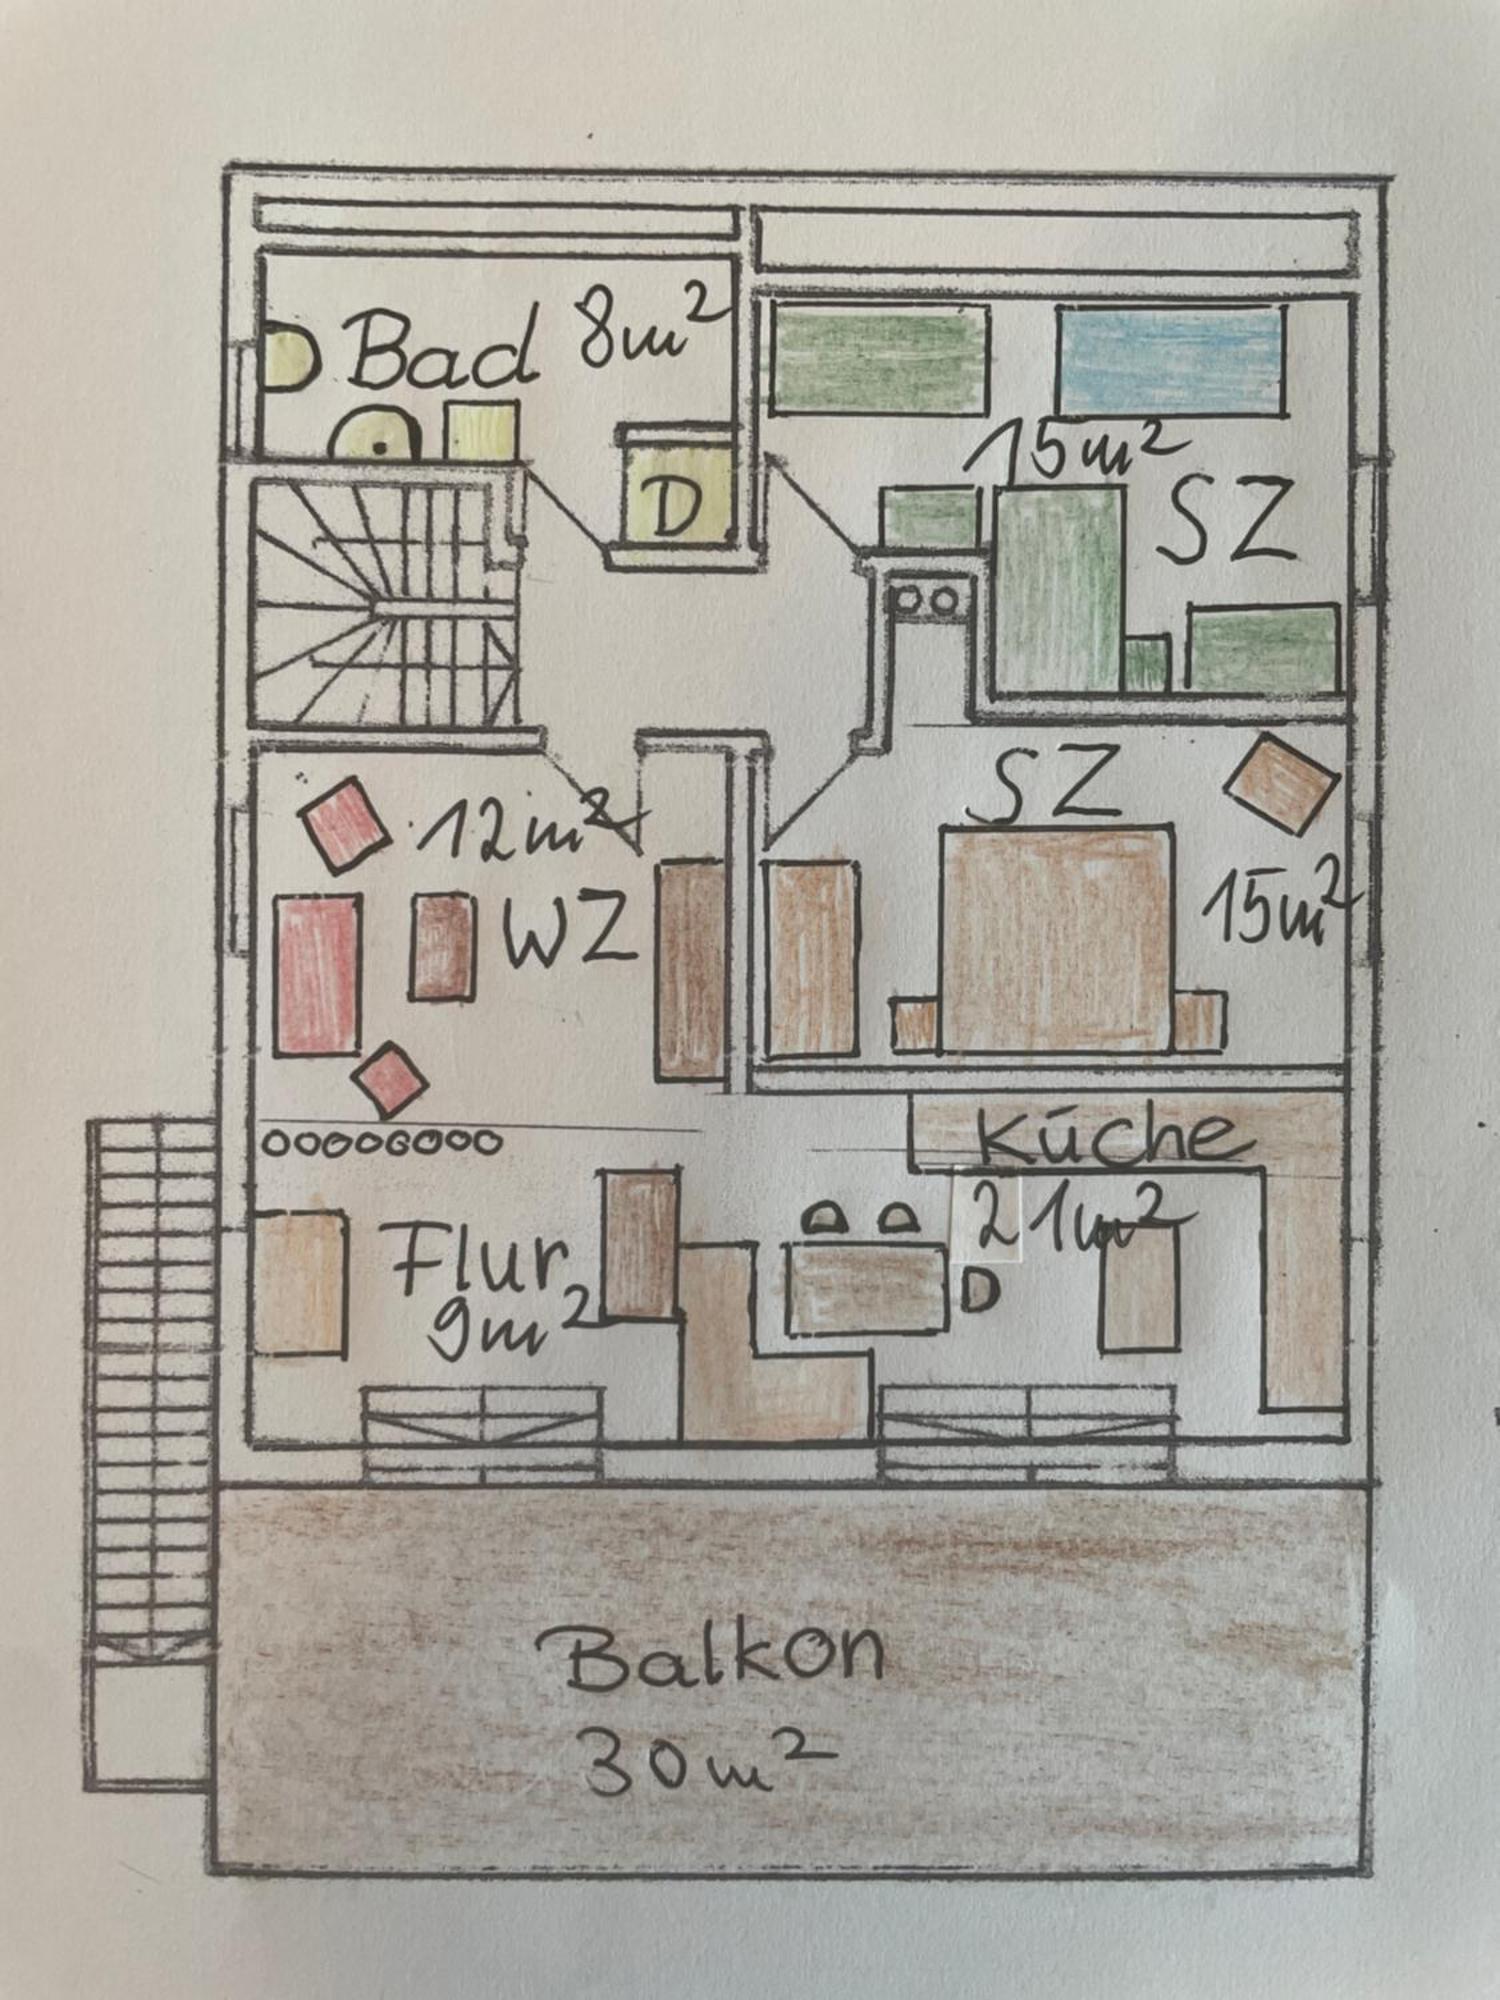 Bad 8m²
D
15m²
SZ
SZ
12m²
15m²
WZ
Küche
21m²
Flur
9m²
Balkon
30m²